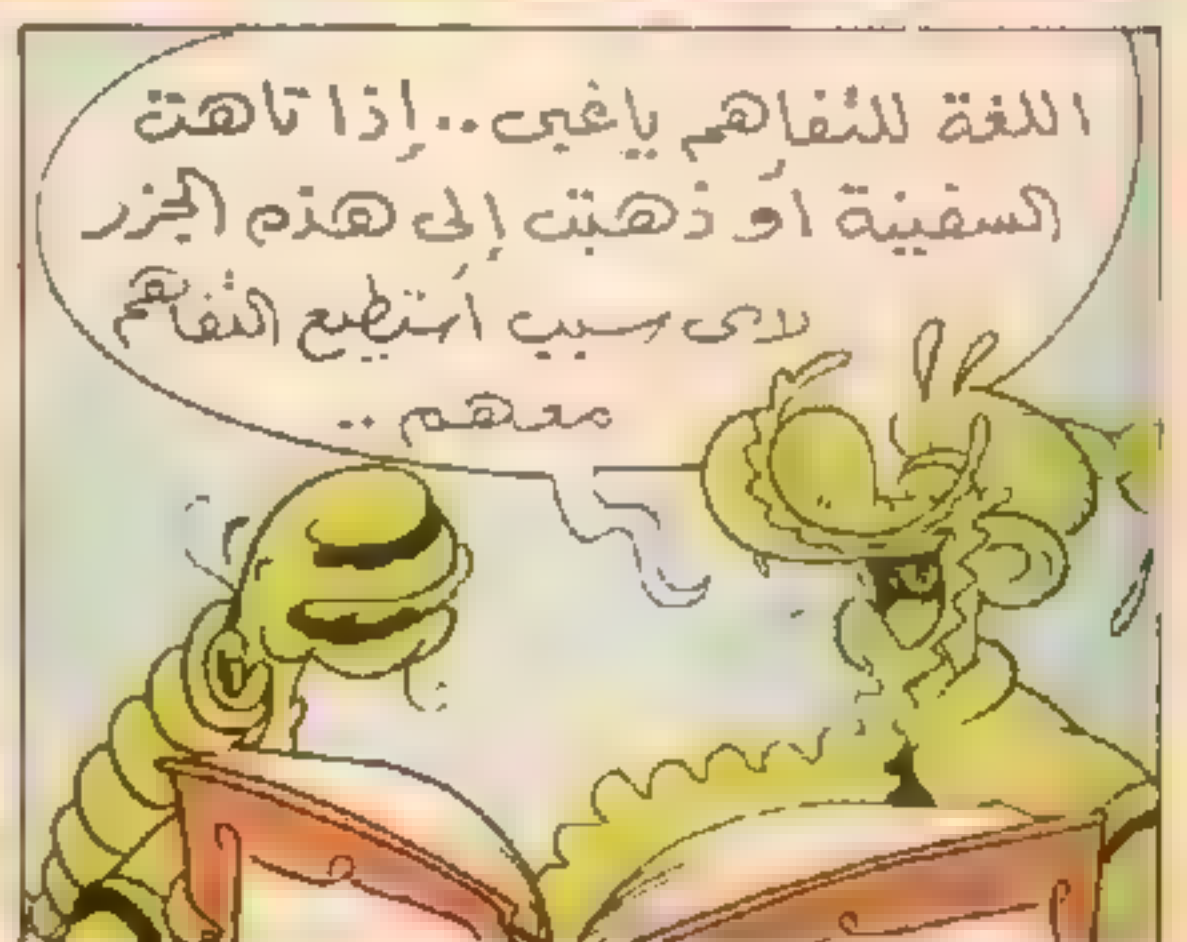 اللغة للتفاهم ياغبى .. إذا تاهت
السفينة أو ذهبت إلى هذه الجزر
لاى سبب أستطيع التفاهم
معهم ..